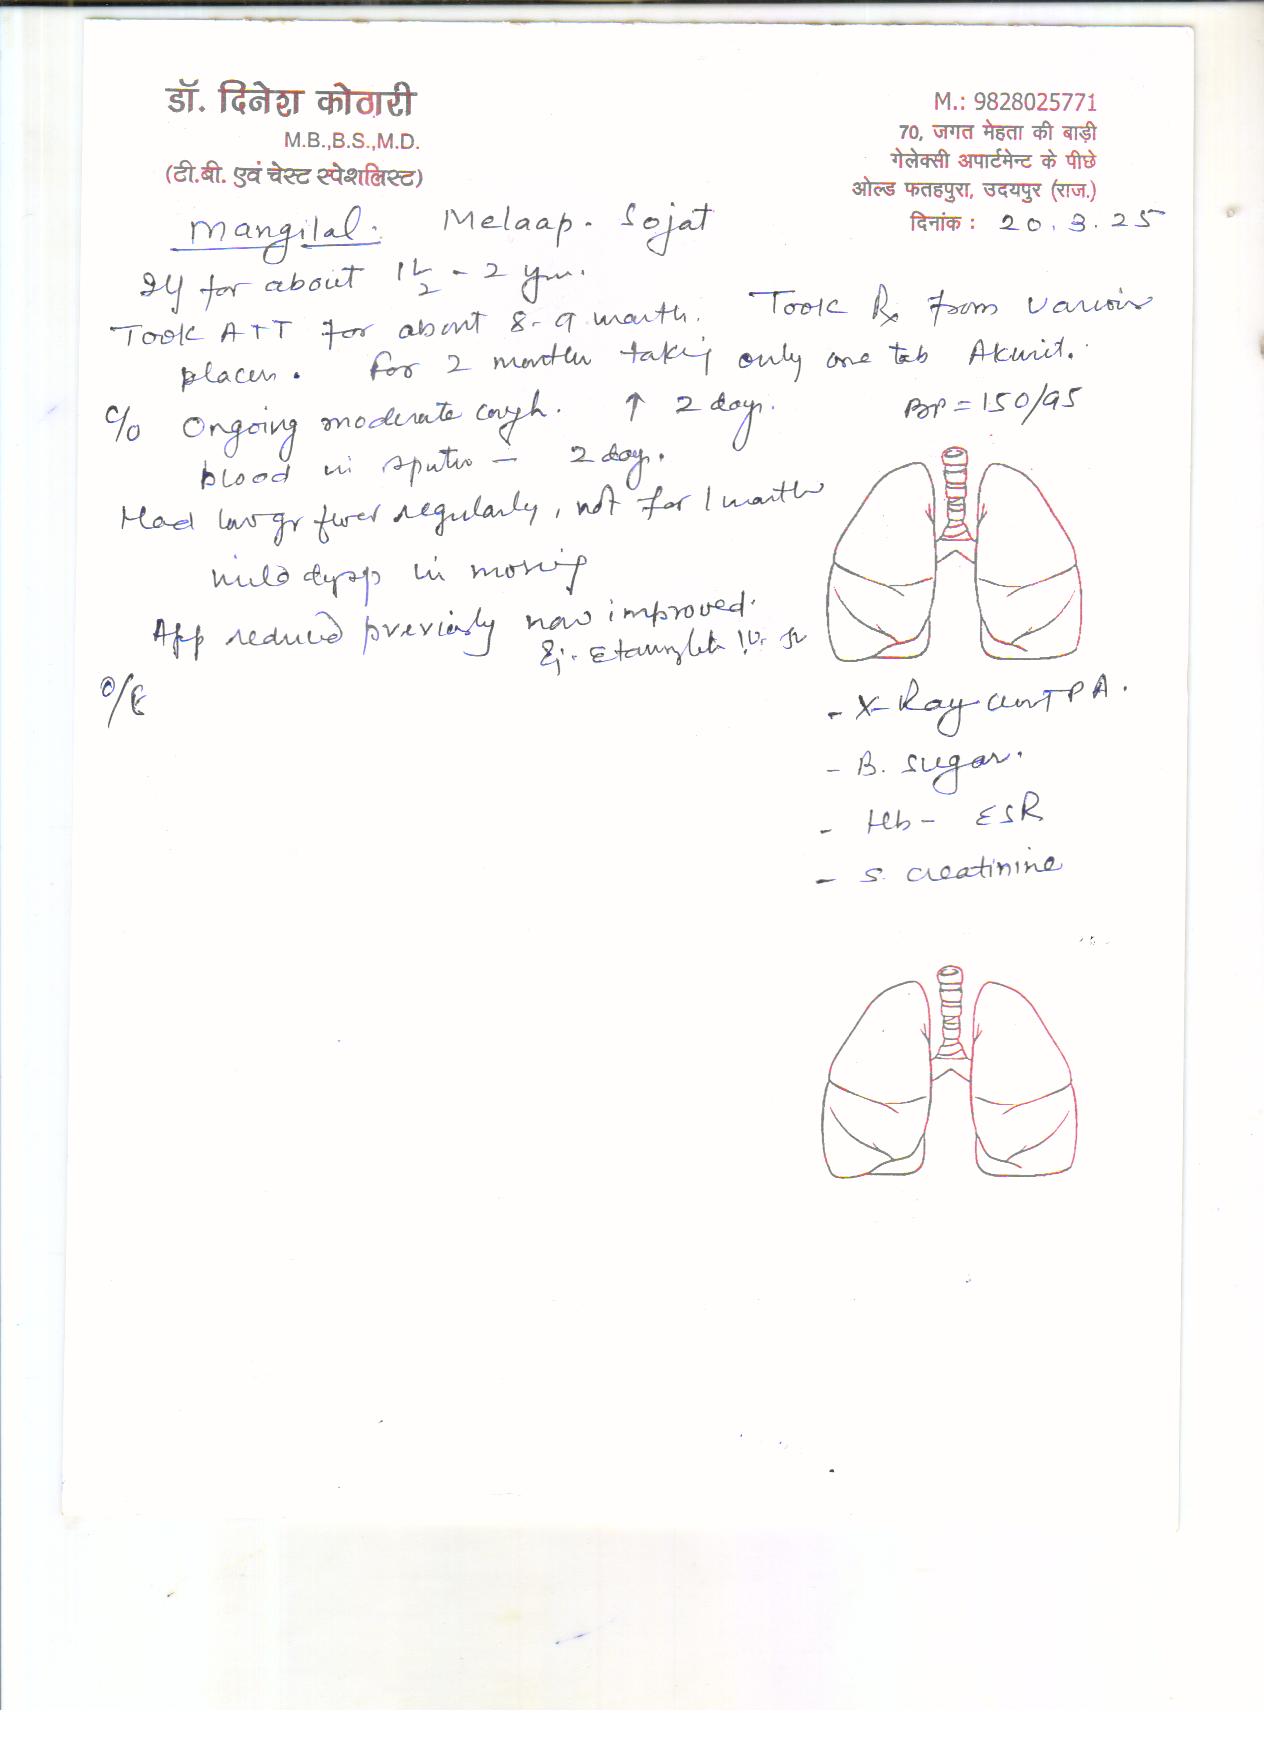 डॉ. दिनेश कोठारी
M.B.,B.S.,M.D.
(टी.बी. एवं चेस्ट स्पेशलिस्ट)
M.: 9828025771
70, जगत मेहता की बाड़ी
गेलेक्सी अपार्टमेन्ट के पीछे
ओल्ड फतहपुरा, उदयपुर (राज.)
दिनांक : 20.3.25
Mangilal. Melaap. Sojat
for about 1 1/2 - 2 yrs.
Took ATT for about 8-9 month. Took Rx from various
places. for 2 months taking only one tab Akurit.
C/o Ongoing moderate cough. ↑ 2 days.
BP = 150/95
blood in sputum - 2 day.
Had low gr fever regularly, not for 1 month
mild dysp in morning
App reduced previously now improved.
O/E
- X-Ray chest PA.
- B. sugar.
- Hb - ESR
- S. creatinine